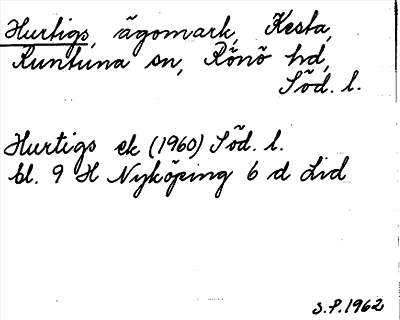 Hurtigs, ägomark, Kesta,
Runtuna sn, Rönö hd,
Söd. l.
Hurtigs ek (1960) Söd. l.
bl. 9 H Nyköping 6 d Lid
S.P. 1962